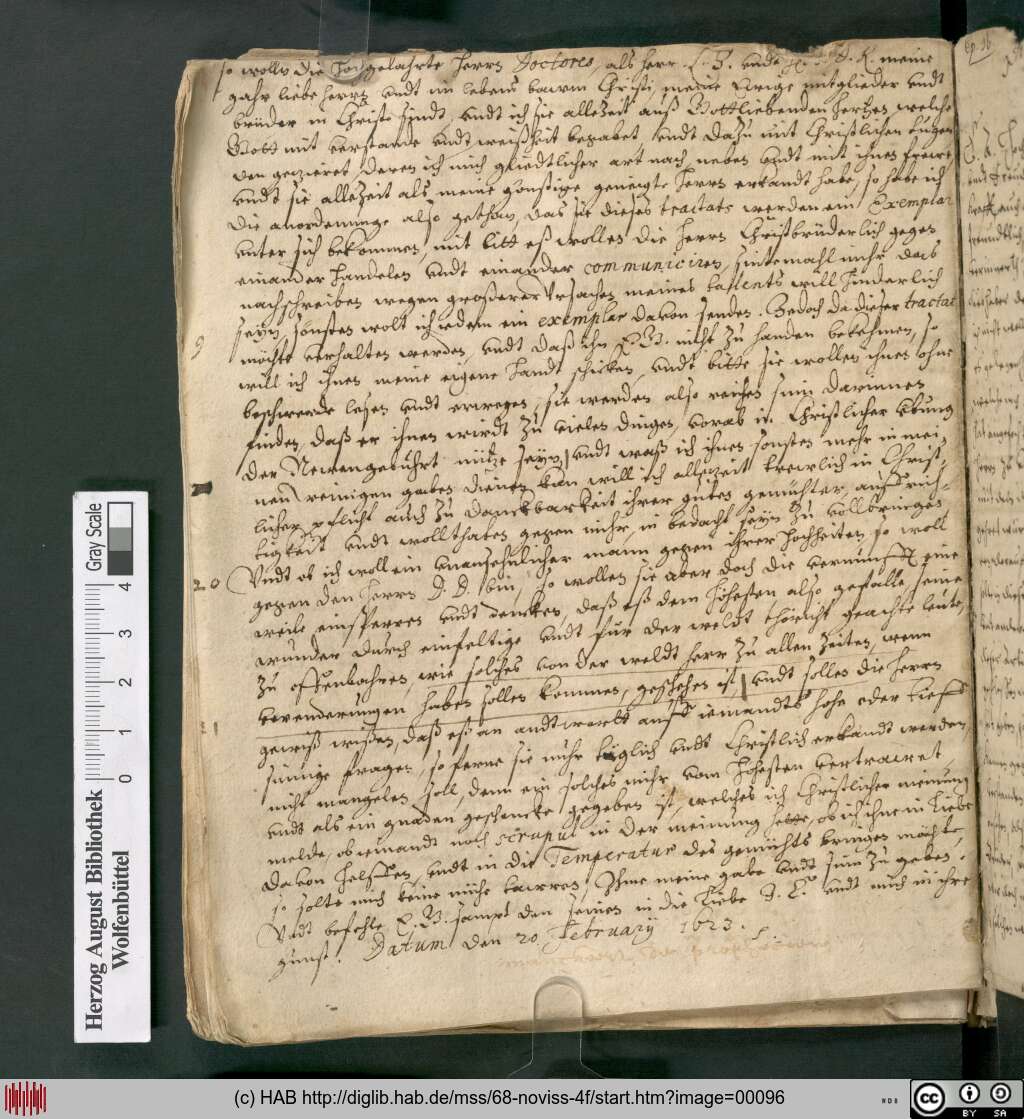 so wollen die Hochgelahrte Herrn Doctores, als herr L. S. undt H. D. K. meine
gahr liebe herrn, undt im lebens baum Christi, meine Ewige mitglieder undt
brüder in Christo sindt, undt ich sie allezeit auß Gottliebenden hertzen, welche
Gott mit verstande undt weißheit begabet undt dazu mit Christlichen tugen
den gezieret, deren ich mich gliedtlicher art nach, neben undt mit ihnen frewe
undt sie allezeit als meine günstige geneigte Herrn erkandt habe, so habe ich
die anordenunge also gethan, das sie dieses tractats werden ein Exemplar
unter sich bekommen, mit bitt eß wollen die Herrn Christbrüderlich gegen
einander handelen undt einander communiciren, sintemahl mihr das
nachschreiben wegen großerer ursachen meines talents will hinderlich
seyn, sonsten wolt ich iedem ein exemplar davon senden. Jedoch da dieser tractat
9
möchte verhalten werden, undt daß ihn E. G. nicht zu handen bekehmen, so
will ich ihnen meine eigene handt schicken, undt bitte sie wollen ihnen ohne
beschwerde lesen undt erwegen, sie werden also reichen sinn darinnen
finden, daß er ihnen wirdt zu vielen dingen, vorab in Christlicher übung
der Newengebuhrt nütze seyn, undt waß ich ihnen sonsten mehr in mei=
nen wenigen gaben dienen kan will ich allezeit trewlich in Christ=
licher pflicht auch zu danckbarkeit ihrer guten gemühter, auffrich=
tigkeit undt wollthaten gegen mihr, in bedacht seyn zu vollbringen,
10 Undt ob ich woll ein unansehnlicher mann gegen ihrer Hochheiten, so woll
gegen den Herrn D. D. bin, so wollen sie aber doch die vernunfft eine
weile einsperren undt dencken, daß eß dem Höhesten also gefalle seine
wunder durch einfeltige undt für der weldt thöricht geachte leute,
zu offenbahren, wie solches von der weldt herr zu allen zeiten, wenn
verenderungen haben sollen kommen, geschehen ist, undt sollen die Herrn
gewiß wißen, daß eß an andtwordt auff iemandts hohe oder tieff
sinnige fragen, so ferne sie nuhr töglich undt Christlich erkandt werden,
nicht mangelen soll, denn ein solches mihr vom Höhesten vertrawet
undt als ein gnaden geschencke gegeben ist, welches ich Christlicher meinung
melde, ob iemandt noch scrupul in der meinung hette, ob ich ihme in liebe
davon helffen, undt in die Temperatur des gemühts bringen möchte,
so solte mich keine mühe tawren, Ihme meine gabe undt sinn zu geben.
Undt befehle E. G. sampt den seinen in die Liebe J. C. undt mich in ihre
gunst. Datum den 20 February 1623.
Herzog August Bibliothek
Wolfenbüttel
Gray Scale
0 1 2 3 4
(c) HAB http://diglib.hab.de/mss/68-noviss-4f/start.htm?image=00096
cc BY SA